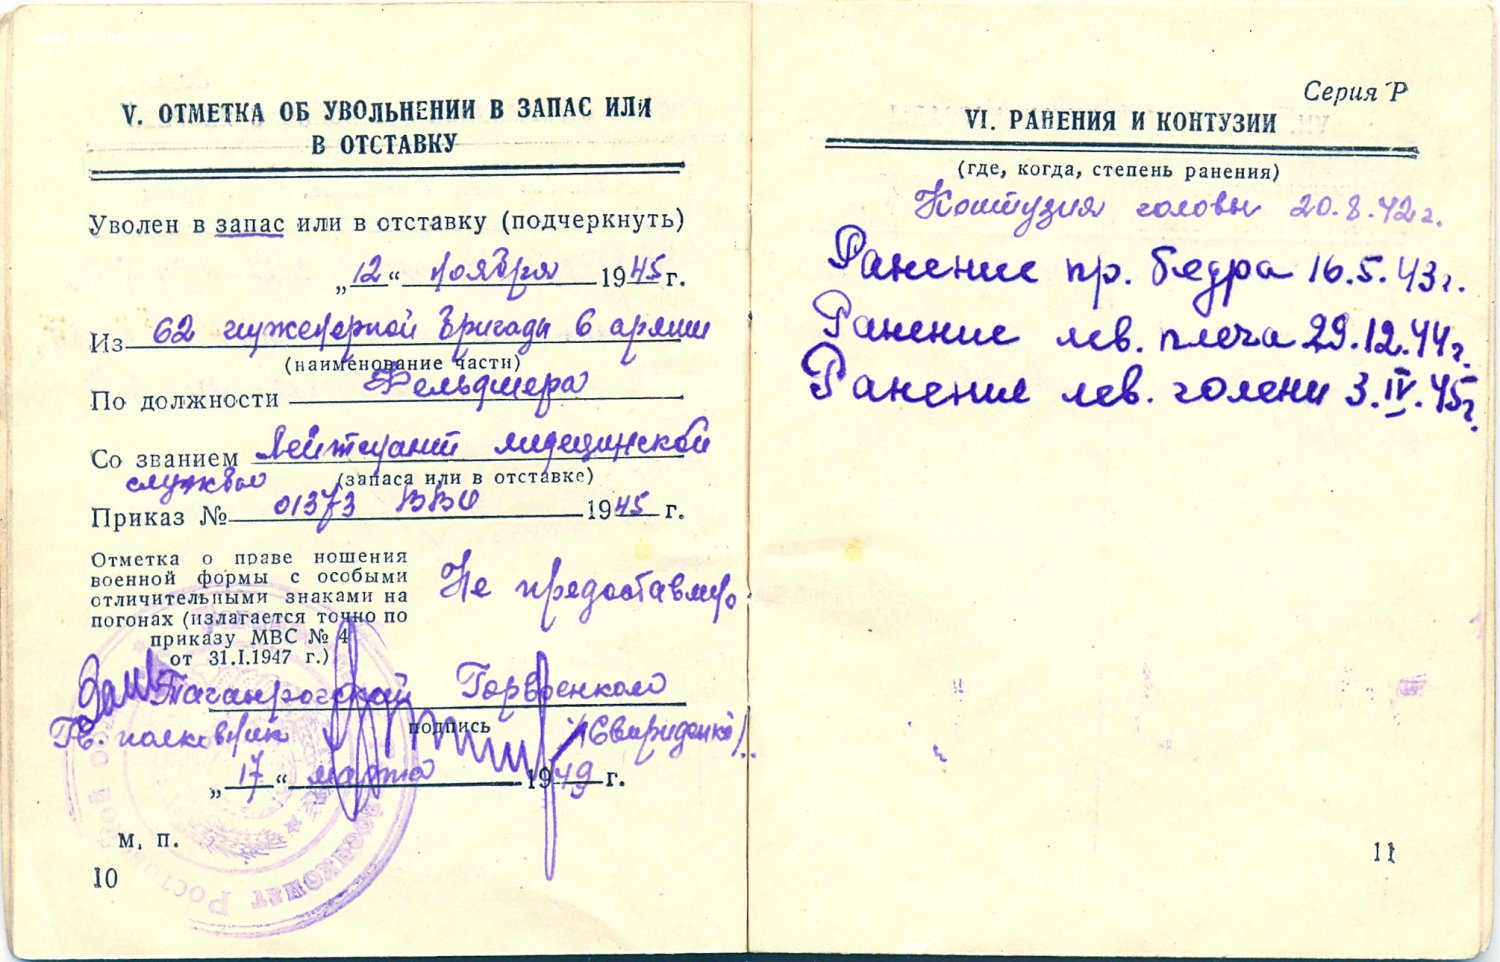 V. ОТМЕТКА ОБ УВОЛЬНЕНИИ В ЗАПАС ИЛИ
В ОТСТАВКУ
Уволен в запас или в отставку (подчеркнуть)
„12“ ноября 1945 г.
Из 62 инженерной бригады 6 армии
(наименование части)
По должности Фельдшера
Со званием Лейтенант медицинской
службы (запаса или в отставке)
Приказ № 01373 ВВО 1945 г.
Отметка о праве ношения
военной формы с особыми
отличительными знаками на
погонах (излагается точно по
приказу МВС № 4
от 31.I.1947 г.)
Не предоставлено
Зам. Таганрогский Горвоенком
Гв. полковник подпись /Свириденко/
„17“ марта 1949 г.
м. п.
10
Серия Р
VI. РАНЕНИЯ И КОНТУЗИИ
(где, когда, степень ранения)
Контузия головы 20.8.42 г.
Ранение пр. бедра 16.5.43 г.
Ранение лев. плеча 29.12.44 г.
Ранение лев. голени 3.IV.45 г.
11